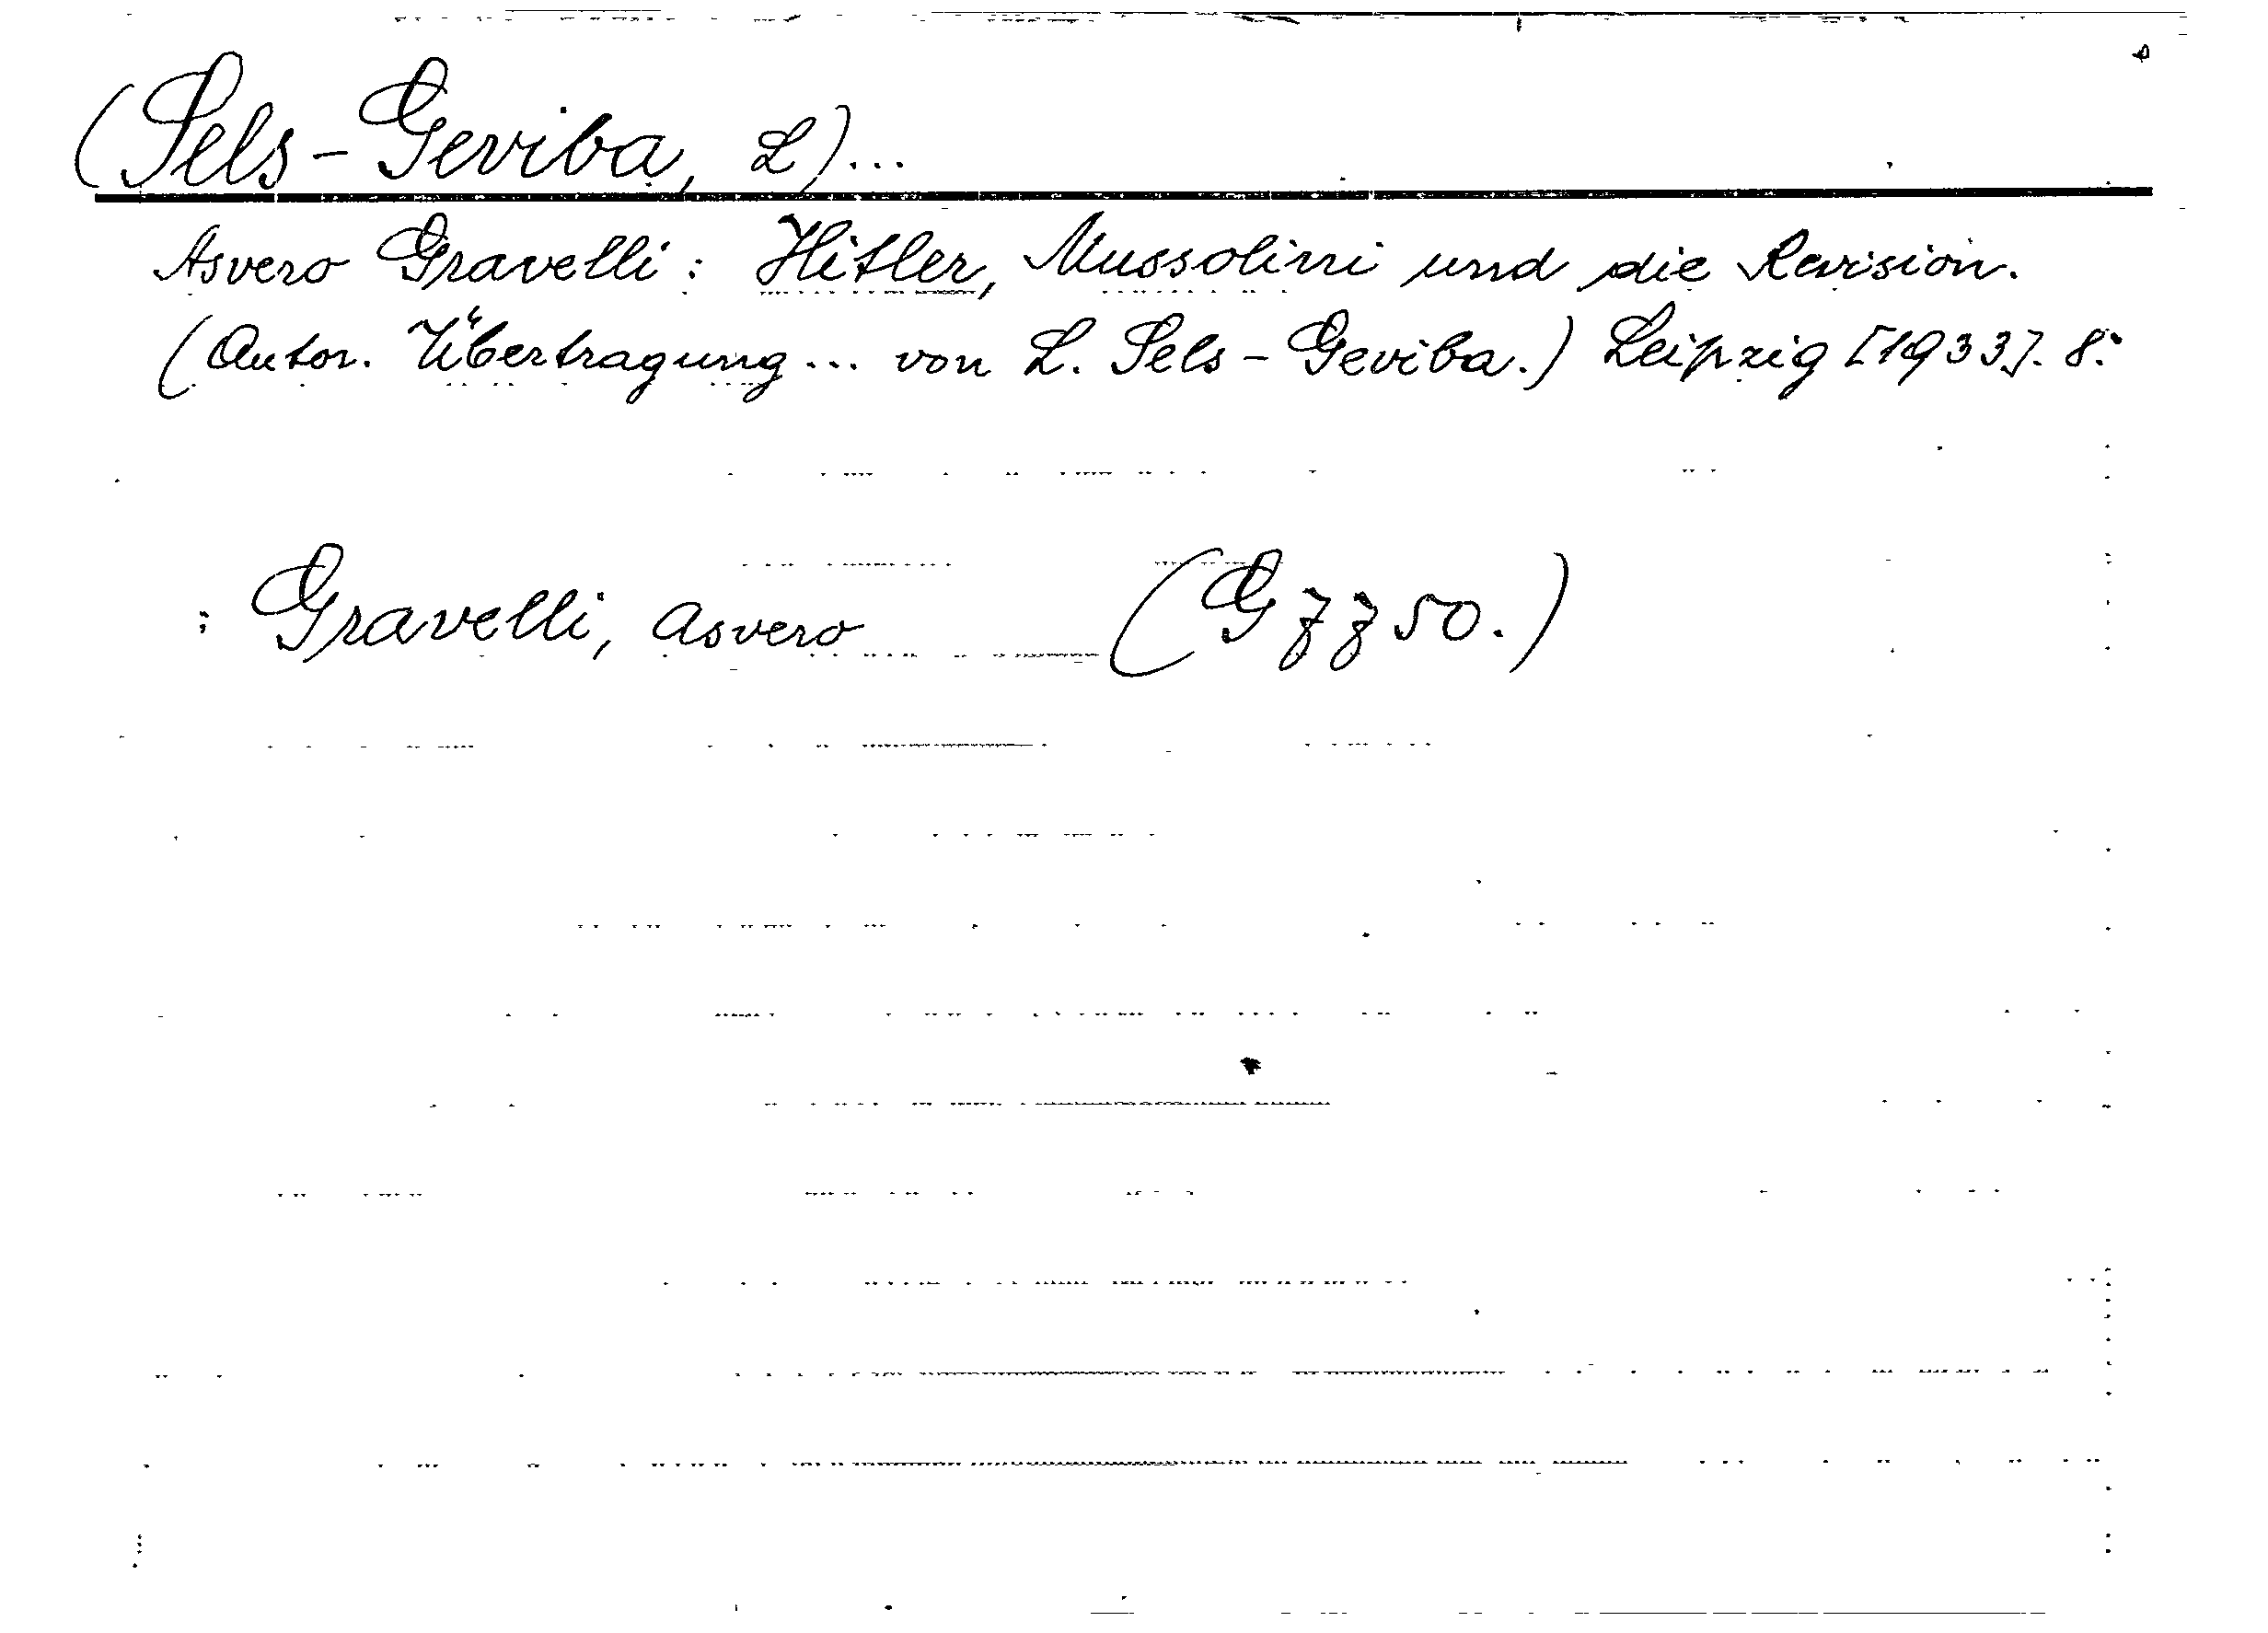 (Sels-Geviba, L)...
Asvero Gravelli: Hitler, Mussolini und die Revision.
(Autor. Übertragung... von L. Sels-Geviba.) Leipzig [1933]. 8°.
: Gravelli, Asvero (G z z 50.)